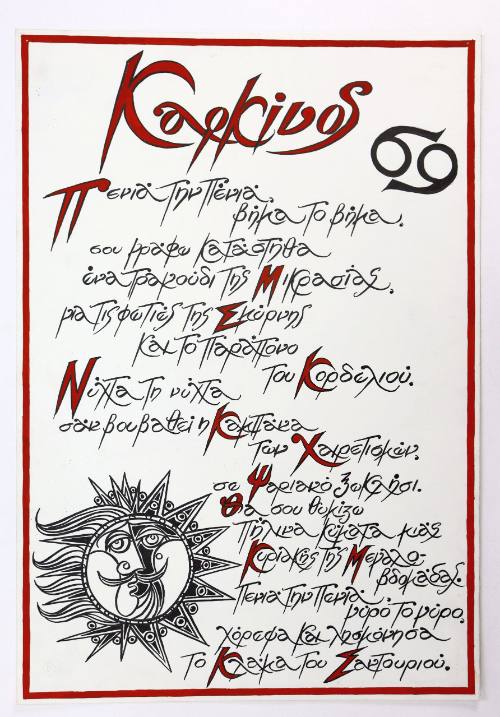 Καρκίνος
Πενιά την Πένιά,
βήμα το βήμα.
σου γράφω κατάστηθα
ένα τραγούδι της Μικρασίας,
για τις φωτιές της Σμύρνης
Και το παράπονο
του Κορδελιού.
Νύχτα τη νύχτα
σαν βουβαθεί η Καμπάνα
των Χαιρετισμών,
σε Ψαριανό ξωκλήσι.
Θα σου θυμίζω
Πήλινα Κύματα μιάς
Κυριακής της Μεγαλο-
βδομάδας.
Πενιά την Πενιά,
γύρο το γύρο,
χόρεψα Και λησμόνησα
Το Κλάμα του Σαντουριού.